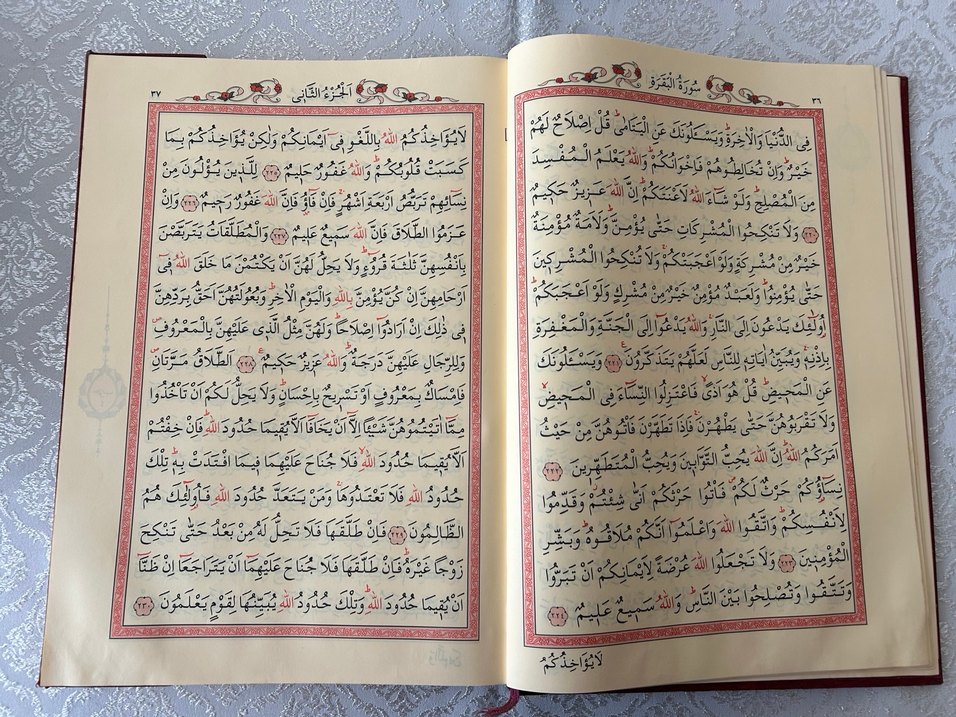 سُورَةُ الْبَقَرَةِ
٣٦
فِى الدُّنْيَا وَالْاٰخِرَةِۜ وَيَسْـَٔلُونَكَ عَنِ الْيَتَامٰىۜ قُلْ اِصْلَاحٌ لَهُمْ
خَيْرٌۜ وَاِنْ تُخَالِطُوهُمْ فَاِخْوَانُكُمْۜ وَاللّٰهُ يَعْلَمُ الْمُفْسِدَ
مِنَ الْمُصْلِحِۜ وَلَوْ شَٓاءَ اللّٰهُ لَاَعْنَتَكُمْۜ اِنَّ اللّٰهَ عَزِيزٌ حَكِيمٌ
﴿٢٢٠﴾ وَلَا تَنْكِحُوا الْمُشْرِكَاتِ حَتّٰى يُؤْمِنَّۜ وَلَاَمَةٌ مُؤْمِنَةٌ
خَيْرٌ مِنْ مُشْرِكَةٍ وَلَوْ اَعْجَبَتْكُمْۚ وَلَا تُنْكِحُوا الْمُشْرِكِينَ
حَتّٰى يُؤْمِنُواۜ وَلَعَبْدٌ مُؤْمِنٌ خَيْرٌ مِنْ مُشْرِكٍ وَلَوْ اَعْجَبَكُمْۜ
اُو۬لٰٓئِكَ يَدْعُونَ اِلَى النَّارِۚ وَاللّٰهُ يَدْعُٓوا اِلَى الْجَنَّةِ وَالْمَغْفِرَةِ
بِاِذْنِهٖۚ وَيُبَيِّنُ اٰيَاتِهٖ لِلنَّاسِ لَعَلَّهُمْ يَتَذَكَّرُونَ ﴿٢٢١﴾ وَيَسْـَٔلُونَكَ
عَنِ الْمَحِيضِۜ قُلْ هُوَ اَذًىۙ فَاعْتَزِلُوا النِّسَٓاءَ فِى الْمَحِيضِۙ
وَلَا تَقْرَبُوهُنَّ حَتّٰى يَطْهُرْنَۚ فَاِذَا تَطَهَّرْنَ فَأْتُوهُنَّ مِنْ حَيْثُ
اَمَرَكُمُ اللّٰهُۜ اِنَّ اللّٰهَ يُحِبُّ التَّوَّابِينَ وَيُحِبُّ الْمُتَطَهِّرِينَ ﴿٢٢٢﴾
نِسَٓاؤُ۬كُمْ حَرْثٌ لَكُمْۖ فَأْتُوا حَرْثَكُمْ اَنّٰى شِئْتُمْۘ وَقَدِّمُوا
لِاَنْفُسِكُمْۜ وَاتَّقُوا اللّٰهَ وَاعْلَمُٓوا اَنَّكُمْ مُلَاقُوهُۜ وَبَشِّرِ
الْمُؤْمِنِينَ ﴿٢٢٣﴾ وَلَا تَجْعَلُوا اللّٰهَ عُرْضَةً لِاَيْمَانِكُمْ اَنْ تَبَرُّوا
وَتَتَّقُوا وَتُصْلِحُوا بَيْنَ النَّاسِۜ وَاللّٰهُ سَمِيعٌ عَلِيمٌ ﴿٢٢٤﴾
لَا يُؤَاخِذُكُمُ
اَلْجُزْءُ الثَّانٖى
٣٧
لَا يُؤَاخِذُكُمُ اللّٰهُ بِاللَّغْوِ فٖٓى اَيْمَانِكُمْ وَلٰكِنْ يُؤَاخِذُكُمْ بِمَا
كَسَبَتْ قُلُوبُكُمْۜ وَاللّٰهُ غَفُورٌ حَلِيمٌ ﴿٢٢٥﴾ لِلَّذِينَ يُؤْلُونَ مِنْ
نِسَٓائِهِمْ تَرَبُّصُ اَرْبَعَةِ اَشْهُرٍۚ فَاِنْ فَٓاؤُ۫ فَاِنَّ اللّٰهَ غَفُورٌ رَحِيمٌ ﴿٢٢٦﴾ وَاِنْ
عَزَمُوا الطَّلَاقَ فَاِنَّ اللّٰهَ سَمِيعٌ عَلِيمٌ ﴿٢٢٧﴾ وَالْمُطَلَّقَاتُ يَتَرَبَّصْنَ
بِاَنْفُسِهِنَّ ثَلٰثَةَ قُرُٓوءٍۜ وَلَا يَحِلُّ لَهُنَّ اَنْ يَكْتُمْنَ مَا خَلَقَ اللّٰهُ فٖٓى
اَرْحَامِهِنَّ اِنْ كُنَّ يُؤْمِنَّ بِاللّٰهِ وَالْيَوْمِ الْاٰخِرِۜ وَبُعُولَتُهُنَّ اَحَقُّ بِرَدِّهِنَّ
فٖى ذٰلِكَ اِنْ اَرَادُٓوا اِصْلَاحًاۜ وَلَهُنَّ مِثْلُ الَّذٖى عَلَيْهِنَّ بِالْمَعْرُوفِۖ
وَلِلرِّجَالِ عَلَيْهِنَّ دَرَجَةٌۜ وَاللّٰهُ عَزِيزٌ حَكِيمٌ ﴿٢٢٨﴾ اَلطَّلَاقُ مَرَّتَانِۖ
فَاِمْسَاكٌ بِمَعْرُوفٍ اَوْ تَسْرِيحٌ بِاِحْسَانٍۜ وَلَا يَحِلُّ لَكُمْ اَنْ تَأْخُذُوا
مِمَّٓا اٰتَيْتُمُوهُنَّ شَيْـًٔا اِلَّٓا اَنْ يَخَافَٓا اَلَّا يُقِيمَا حُدُودَ اللّٰهِۜ فَاِنْ خِفْتُمْ
اَلَّا يُقِيمَا حُدُودَ اللّٰهِۙ فَلَا جُنَاحَ عَلَيْهِمَا فِيمَا افْتَدَتْ بِهٖۜ تِلْكَ
حُدُودُ اللّٰهِ فَلَا تَعْتَدُوهَاۚ وَمَنْ يَتَعَدَّ حُدُودَ اللّٰهِ فَاُو۬لٰٓئِكَ هُمُ
الظَّالِمُونَ ﴿٢٢٩﴾ فَاِنْ طَلَّقَهَا فَلَا تَحِلُّ لَهُ مِنْ بَعْدُ حَتّٰى تَنْكِحَ
زَوْجًا غَيْرَهُۜ فَاِنْ طَلَّقَهَا فَلَا جُنَاحَ عَلَيْهِمَٓا اَنْ يَتَرَاجَعَٓا اِنْ ظَنَّٓا
اَنْ يُقِيمَا حُدُودَ اللّٰهِۜ وَتِلْكَ حُدُودُ اللّٰهِ يُبَيِّنُهَا لِقَوْمٍ يَعْلَمُونَ ﴿٢٣٠﴾